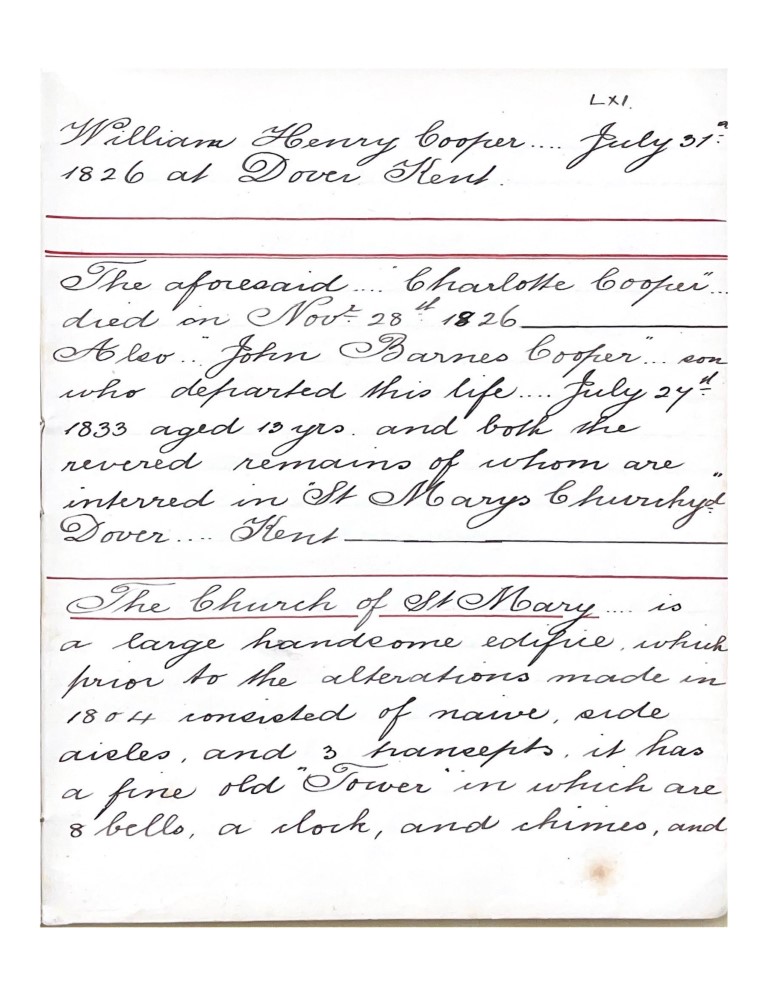 LXI.
William Henry Cooper.... July 31st
1826 at Dover Kent.
The aforesaid.... "Charlotte Cooper"...
died in Novr 28th 1826
Also.. "John Barnes Cooper"... son
who departed this life.... July 27th
1833 aged 13 yrs. and both the
revered remains of whom are
interred in "St Marys Churchyd"
Dover.... Kent
The Church of St Mary.... is
a large handsome edifice, which
prior to the alterations made in
1804 consisted of naive, side
aisles, and 3 transepts, it has
a fine old "Tower" in which are
8 bells, a clock, and chimes, and